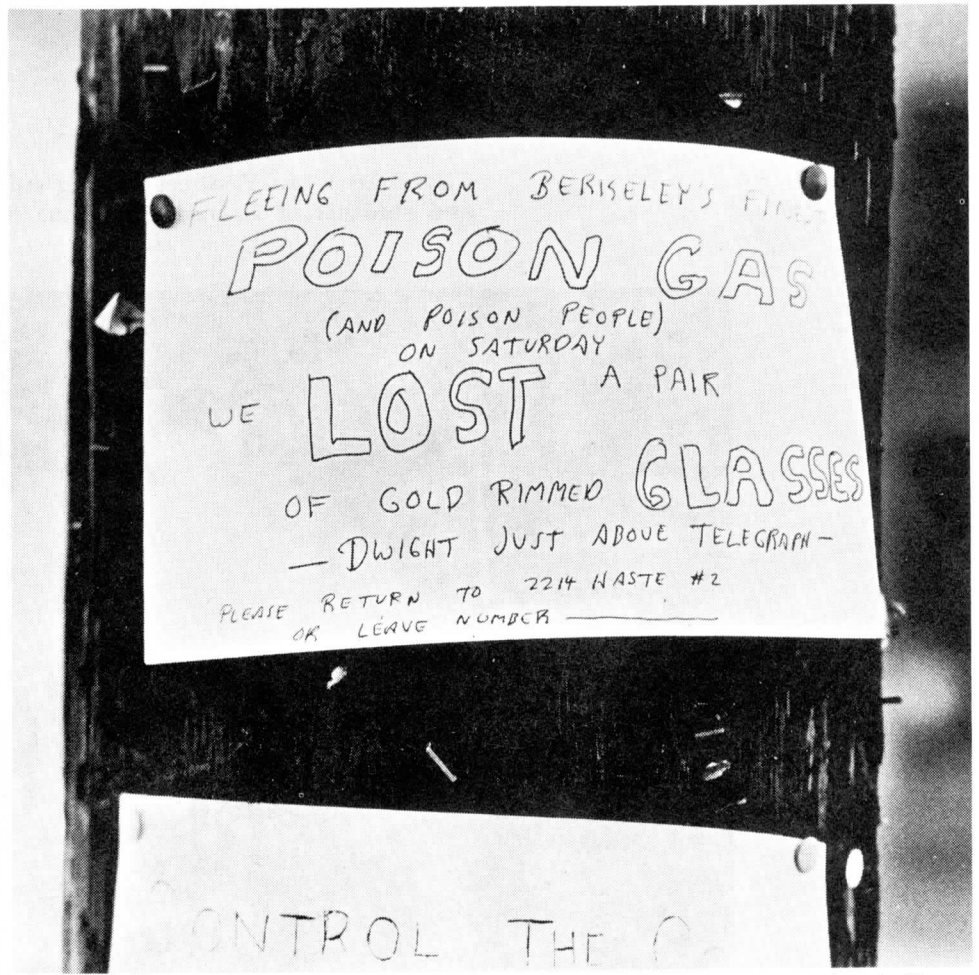 FLEEING FROM BERKSELEY'S FINEST
POISON GAS
(AND POISON PEOPLE)
ON SATURDAY
WE LOST A PAIR
OF GOLD RIMMED GLASSES
— DWIGHT JUST ABOVE TELEGRAPH —
PLEASE RETURN TO 2214 HASTE #2
OR LEAVE NUMBER ________
CONTROL THE